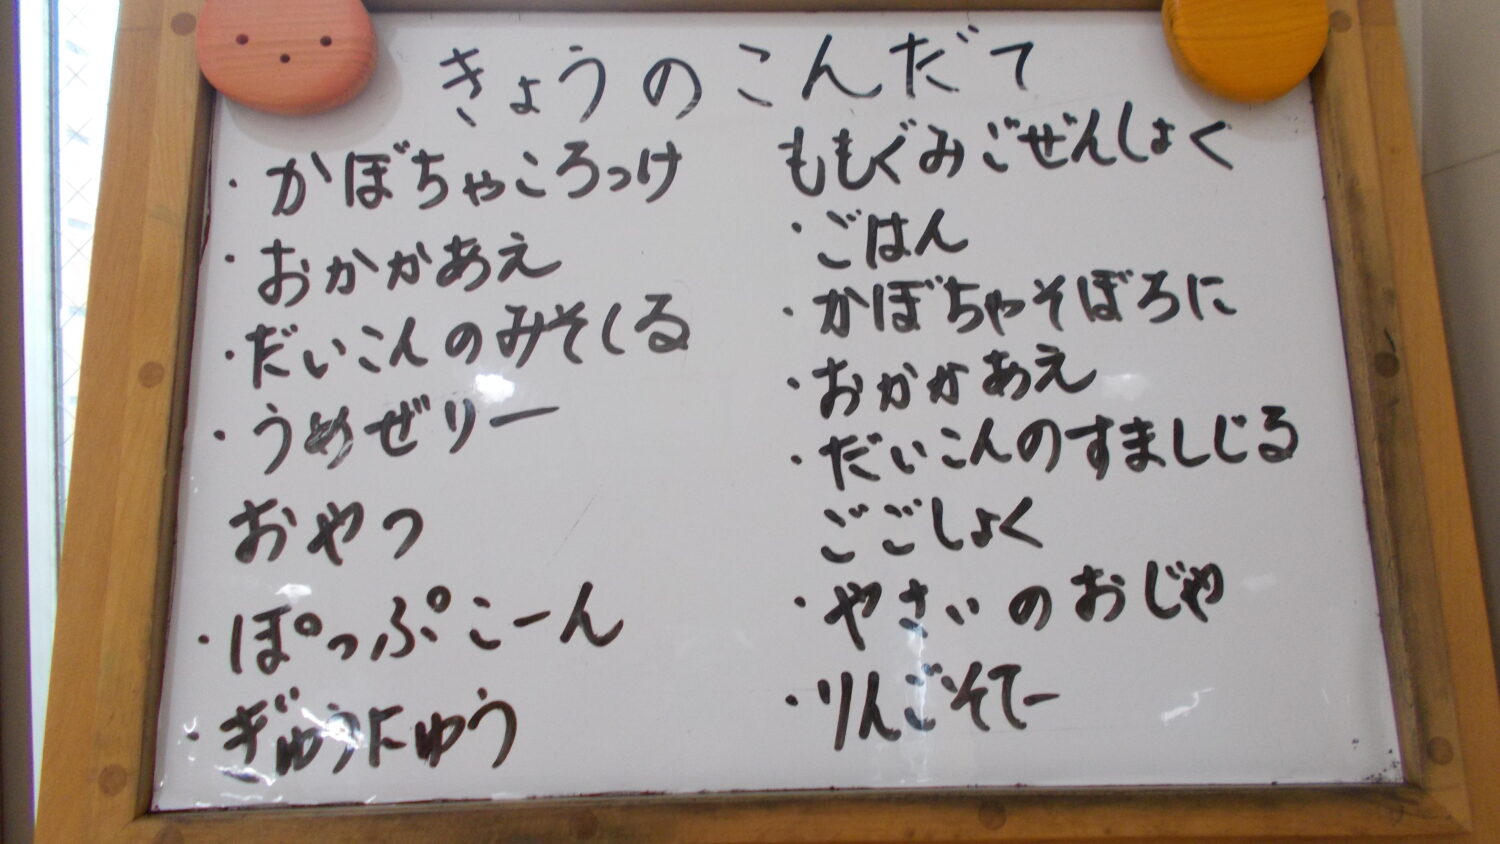 きょうのこんだて
・かぼちゃころっけ
・おかかあえ
・だいこんのみそしる
・うめぜりー
おやつ
・ぽっぷこーん
・ぎゅうにゅう
ももぐみごぜんしょく
・ごはん
・かぼちゃそぼろに
・おかかあえ
・だいこんのすましじる
ごごしょく
・やさいのおじや
・りんごそてー